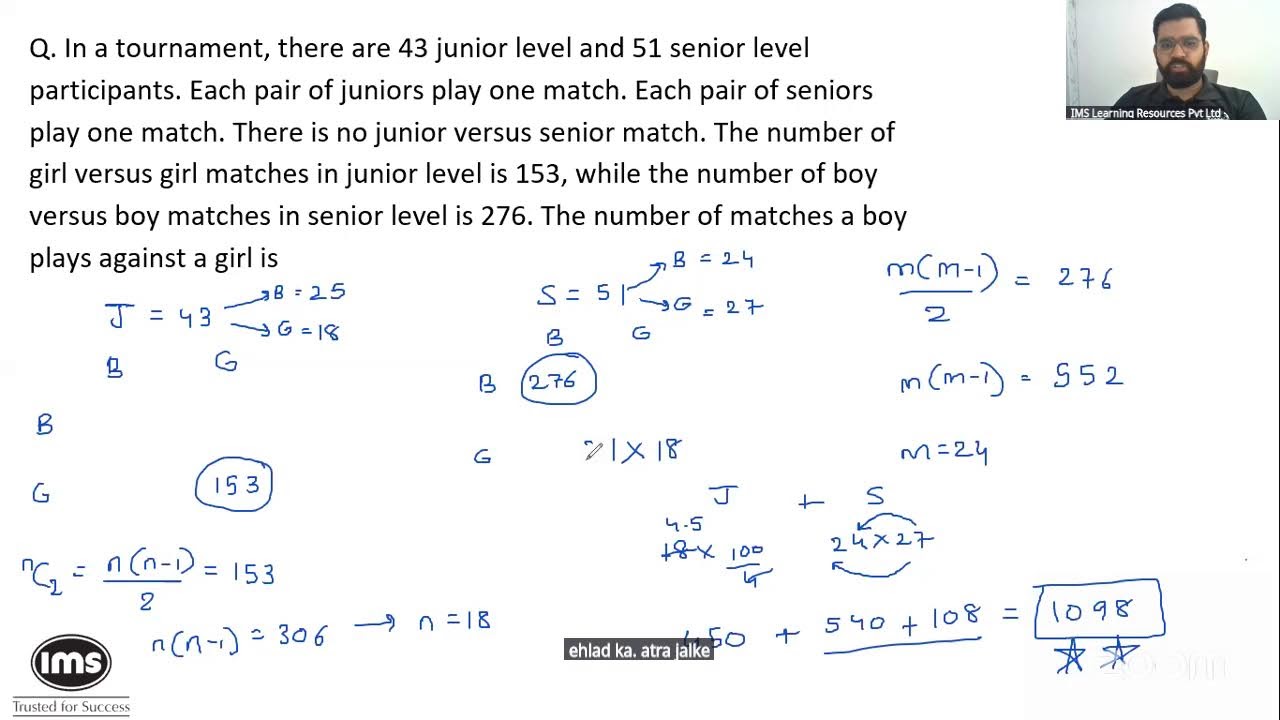 Q. In a tournament, there are 43 junior level and 51 senior level
participants. Each pair of juniors play one match. Each pair of seniors
play one match. There is no junior versus senior match. The number of
girl versus girl matches in junior level is 153, while the number of boy
versus boy matches in senior level is 276. The number of matches a boy
plays against a girl is
IMS Learning Resources Pvt Ltd
J = 43
B = 25
G = 18
B G
B
G
153
nC2 = n(n-1)/2 = 153
n(n-1) = 306 → n = 18
S = 51
B = 24
G = 27
B G
B 276
G
21 x 18
m(m-1)/2 = 276
m(m-1) = 552
m = 24
J + S
4.5
18 x 100/4
24 x 27
450 + 540 + 108 = 1098
ehlad ka. atra jalke
ims
Trusted for Success
zoom